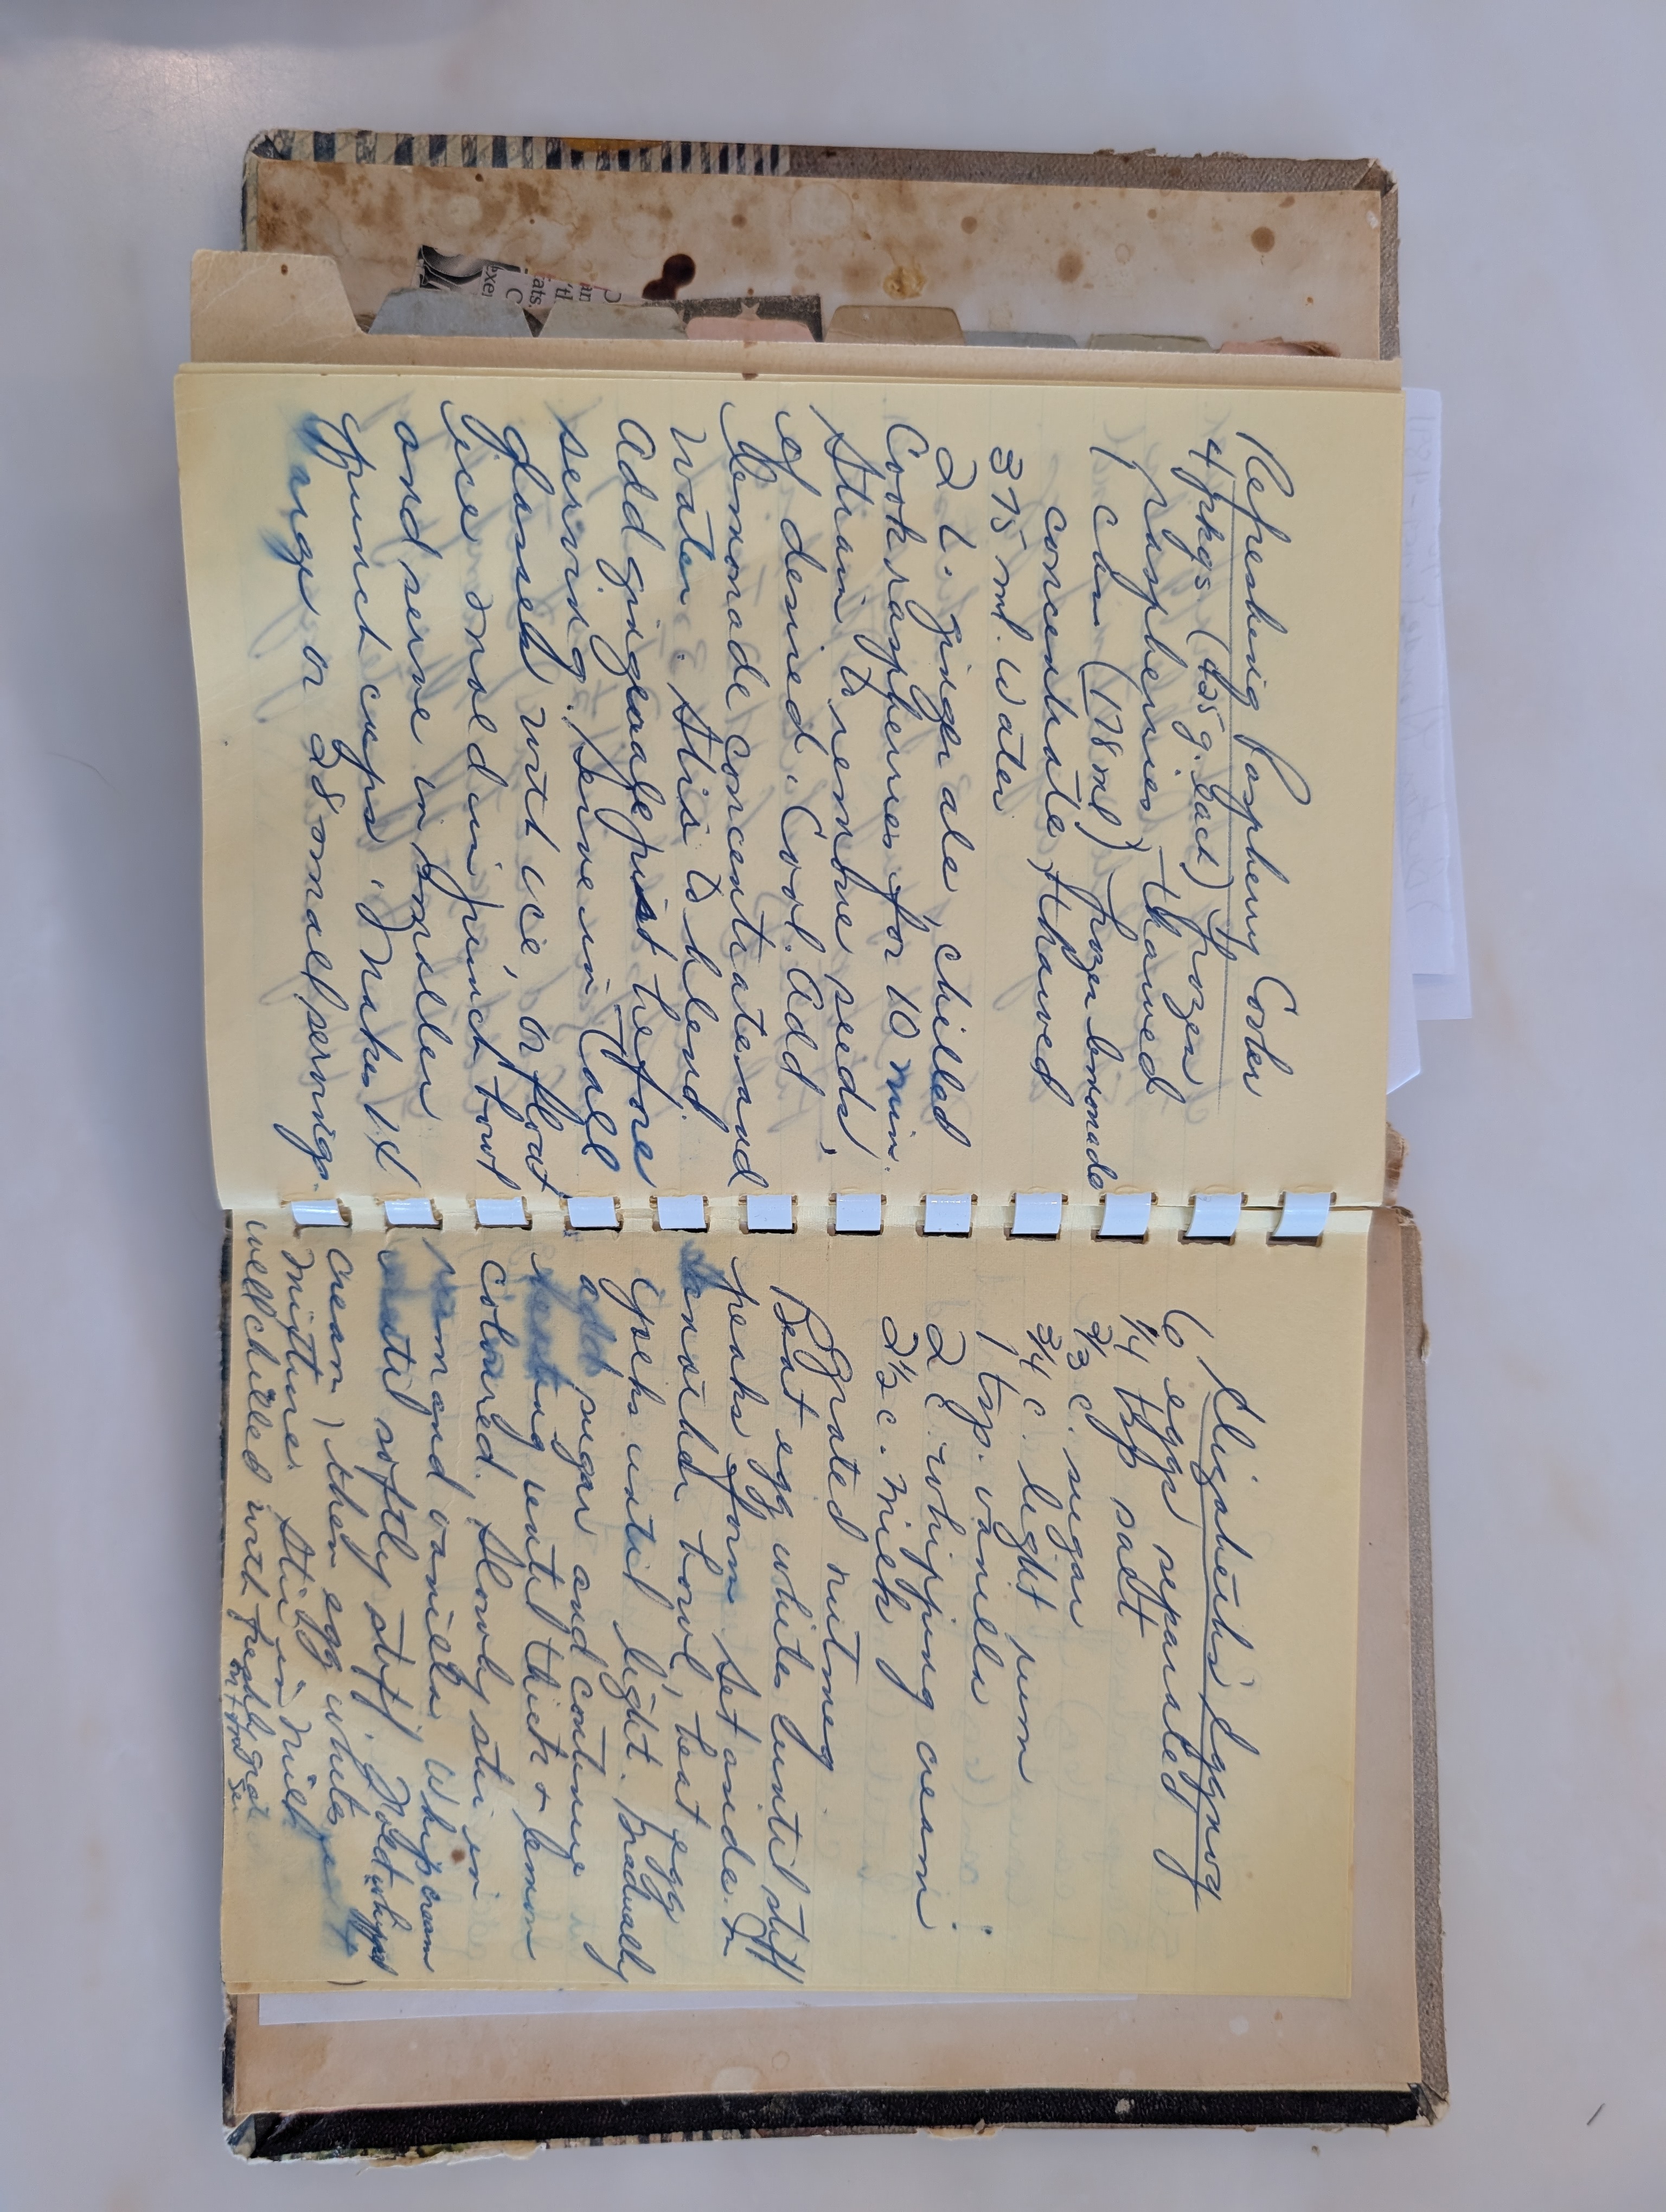 Refreshing Raspberry Cooler
4 pkgs. (425 g. each) frozen
raspberries - thawed
1 can (178 ml) frozen lemonade
concentrate, thawed
375 ml. water
2 L. ginger ale, chilled
Cook raspberries for 10 min.
Strain to remove seeds,
if desired. Cool. Add
lemonade concentrate and
water. Stir to blend.
Add gingerale just before
serving. Serve in tall
glasses with ice, or float
ice mold in punch bowl
and serve in smaller
punch cups. Makes 14
large or 28 small servings.
Elizabeth's Eggnog
6 eggs separated
1/4 tsp salt
2/3 c. sugar
3/4 c. light rum
1 tsp. vanilla
2 c. whipping cream
2 1/2 c. milk
Grated nutmeg
Beat egg whites until stiff
peaks form. Set aside. In
another bowl, beat egg
yolks until light. Gradually
add sugar and continue
beating until thick & lemon
coloured. Slowly stir in
rum and vanilla. Whip cream
until softly stiff. Fold whipped
cream, then egg whites
mixture. Stir in milk
well chilled with freshly
on top
ats.
C